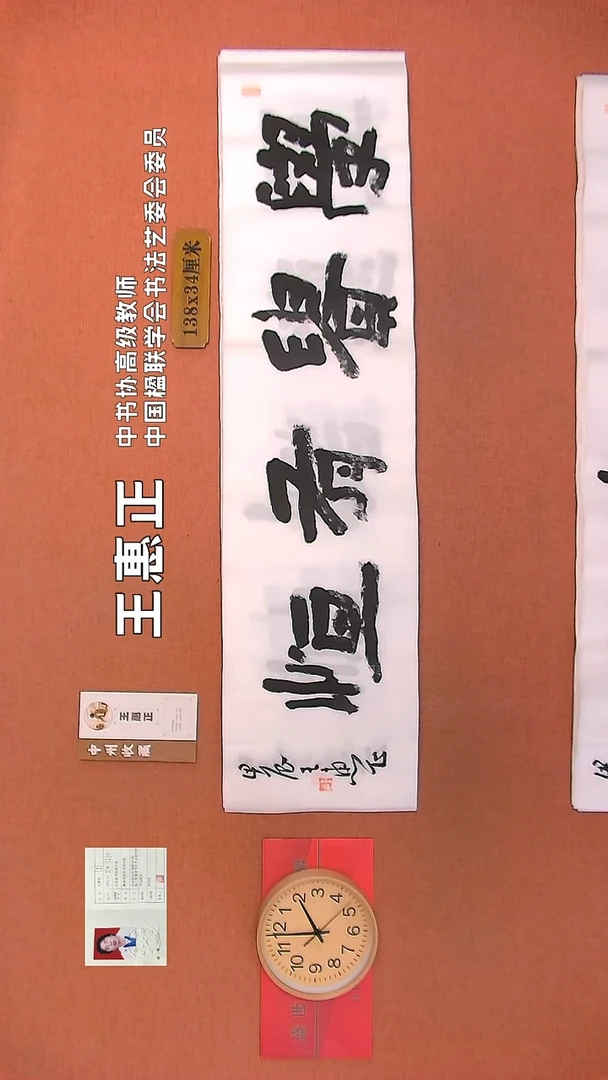 中书协高级教师
中国楹联学会书法艺委会委员
王惠正
138x34厘米
學貴有恒
甲辰王惠正
王惠正
中州收藏
12 1 2 3 4 5 6 7 8 9 10 11